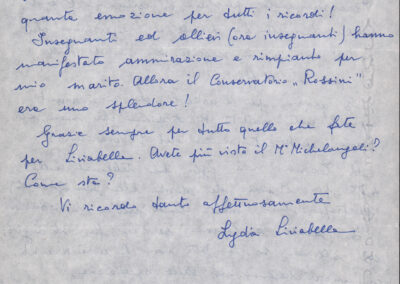 quanta emozione per tutti i ricordi!
Insegnanti ed allievi (ora insegnanti) hanno
manifestato ammirazione e rimpianto per
mio marito. Allora il Conservatorio „Rossini"
era uno splendore!
Grazie sempre per tutto quello che fate
per Liviabella. Avete più visto il Mº Michelangeli?
Come sta?
Vi ricordo tanto affettuosamente
Lydia Liviabella